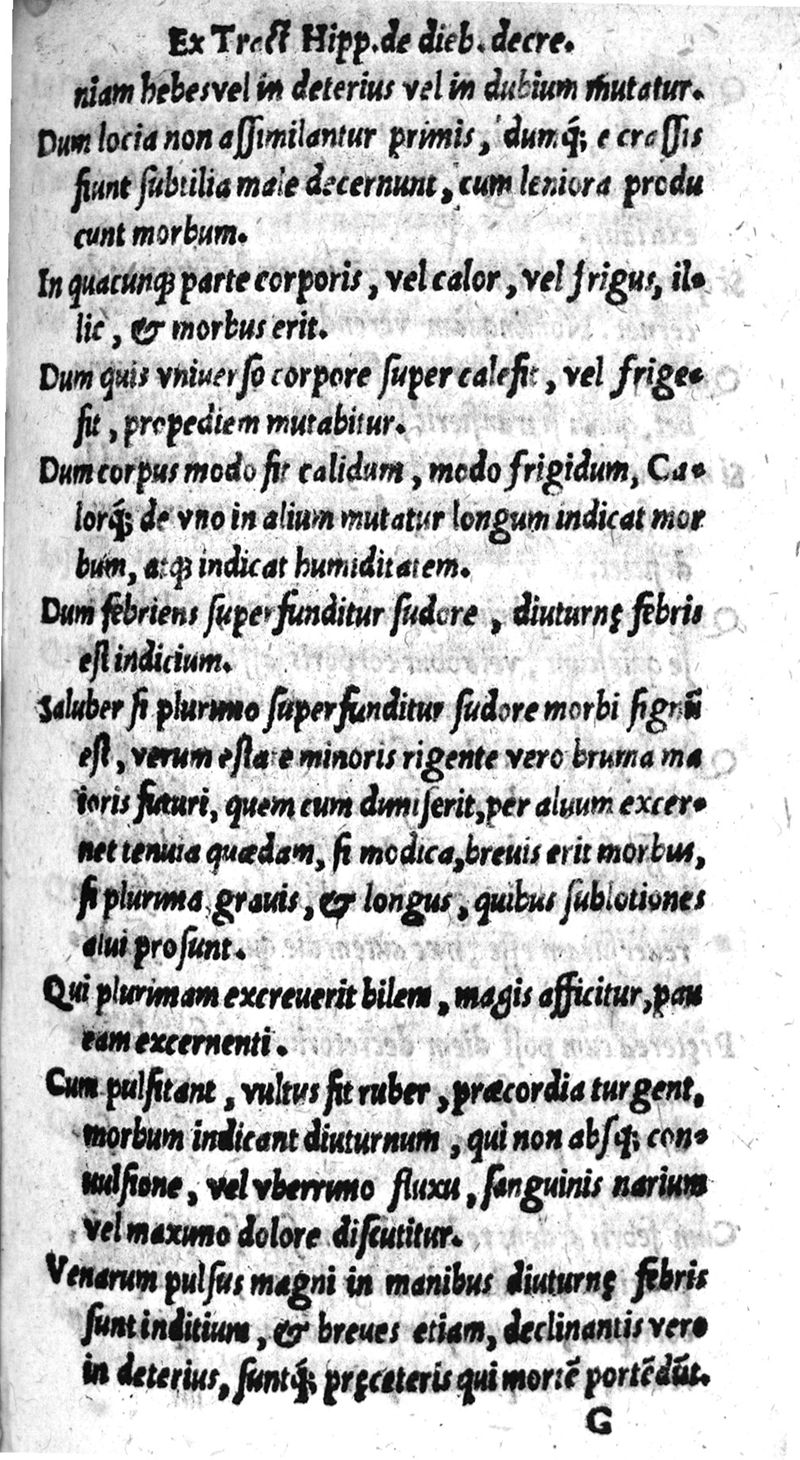 Ex Tract Hipp. de dieb. decre.
niam hebes vel in deterius vel in dubium mutatur.
Dum locia non assimilantur primis, dumq́; e crassis
fiunt subtilia male decernunt, cum leniora produ
cunt morbum.
In quacunq; parte corporis, vel calor, vel frigus, il-
lic, & morbus erit.
Dum quis vniuerso corpore super calefit, vel frige-
fit, propediem mutabitur.
Dum corpus modo fit calidum, modo frigidum, Ca-
lorq́; de vno in alium mutatur longum indicat mor
bum, atq; indicat humiditatem.
Dum febriens superfunditur sudore, diuturnę febris
est indicium.
Saluber si plurimo superfunditur sudore morbi signū
est, verum estate minoris rigente vero bruma ma
ioris futuri, quem cum dimiserit, per aluum excer-
net tenuia quædam, si modica, breuis erit morbus,
si plurima grauis, & longus, quibus sublotiones
alui prosunt.
Qui plurimam excreuerit bilem, magis afficitur, pau
eam excernenti.
Cum pulsitant, vultus fit ruber, præcordia turgent,
morbum indicant diuturnum, qui non absq; con-
uulsione, vel vberrimo fluxu, sanguinis narium
vel maximo dolore discutitur.
Venarum pulsus magni in manibus diuturnę febris
sunt inditium, & breues etiam, declinantis vero
in deterius, suntq́; pręceteris qui mortē portēdūt.
G